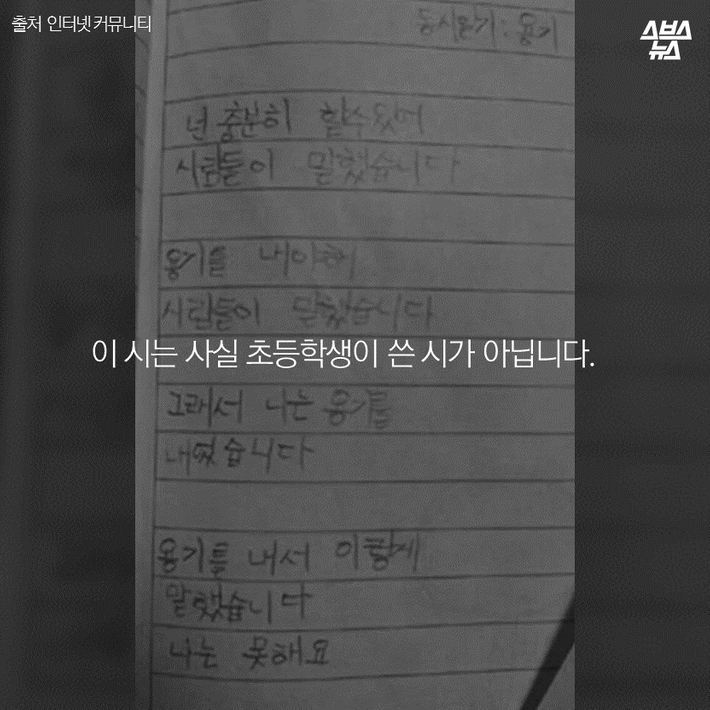 출처 인터넷 커뮤니티
스브스
뉴스
동시읽기 : 용기
넌 충분히 할수있어
사람들이 말했습니다
용기를 내야해
사람들이 말했습니다
이 시는 사실 초등학생이 쓴 시가 아닙니다.
그래서 나는 용기를
내었습니다
용기를 내서 이렇게
말했습니다
나는 못해요